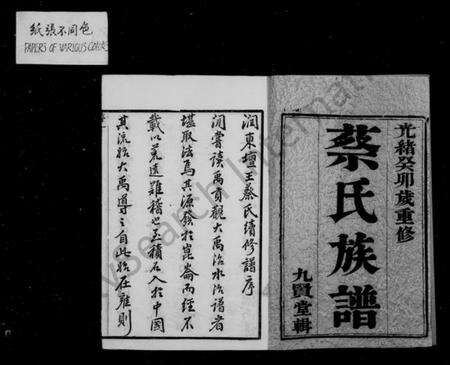 紙張不同色
PAPERS OF VARIOUS COLORS
光緒癸卯歲重修
蔡氏族譜
九賢堂輯
潤東壇王蔡氏續修譜序
聞嘗讀禹貢觀大禹治水譜者
堪取法焉其源發於崑崙而經不
載以荒遠難稽也至積石入於中國
其流始大禹導之自此始在雍則